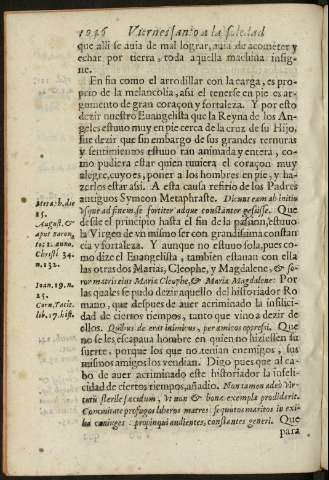 1036 Viernes santo a la soledad
que allí se auia de mal lograr, auia de acometer y
echar por tierra, toda aquella machina insig-
ne.
En fin como el arrodillar con la carga, es pro-
prio de la melancolia, assi el tenerse en pie es ar-
gumento de gran coraçon y fortaleza. Y por esto
dezir nuestro Euangelista que la Reyna de los An-
geles estuuo muy en pie cerca de la cruz de su Hijo,
fue dezir que sin embargo de sus grandes ternuras
y sentimientos estuuo tan animada y entera, co-
mo pudiera estar quien tuuiera el coraçon muy
alegre, cuyo es, poner a los hombres en pie, y ha-
zerlos estar assi. A esta causa refirio de los Padres
antiguos Symeon Metaphraste. Dicunt eam ab initio
vsque ad finem se fortiter adque constanter gessisse. Que
desde el principio hasta el fin de la passion, estuuo
la Virgen de vn mismo ser con grandissima constan
cia y fortaleza. Y aunque no estuuo sola, pues co-
mo dize el Euangelista, tambien estauan con ella
las otras dos Marias, Cleophe, y Magdalene, & so-
ror matris eius Maria Cleophe, & Maria Magdalene: Por
las quales se pudo dezir aquello del historiador Ro
mano, que despues de auer acriminado la infelici-
dad de ciertos tiempos, tanto que vino a dezir de
ellos. Quibus de erat inimicus, per amicos oppressi. Que
no se les escapaua hombre en quien no hiziessen su
suerte, porque los que no tenian enemigos, sus
mismos amigos los vendian. Digo pues que al ca-
bo de auer acriminado este historiador la infeli-
cidad de ciertos tiempos, añadio. Non tamen adeò Vir-
tutũ sterile sæculum, vt non & bona exempla prodiderit.
Comitatæ profugos liberos matres: sequutæ maritos in exi-
lia coniuges: propinqui audientes, constantes generi. Que
para
Meta. h. die
15.
August. C-
aput Baron.
to: 1. anno.
Christi 34.
n. 132.
Ioan. 19. n.
25.
Corn. Taci.
lib. 17. hist.